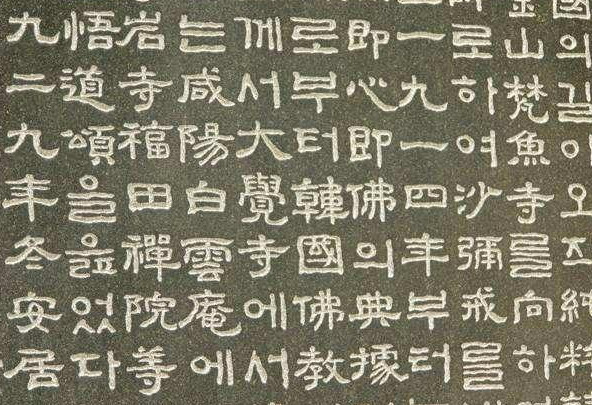 國의길이오
金山梵魚寺를向하
로하여沙彌戒를
一九一四年부터
即心即佛의典據
로부터韓國佛教
에서大覺寺에서
는咸陽白雲庵에
岩寺福田禪院等
悟道頌을읊었다
九二九年冬安居